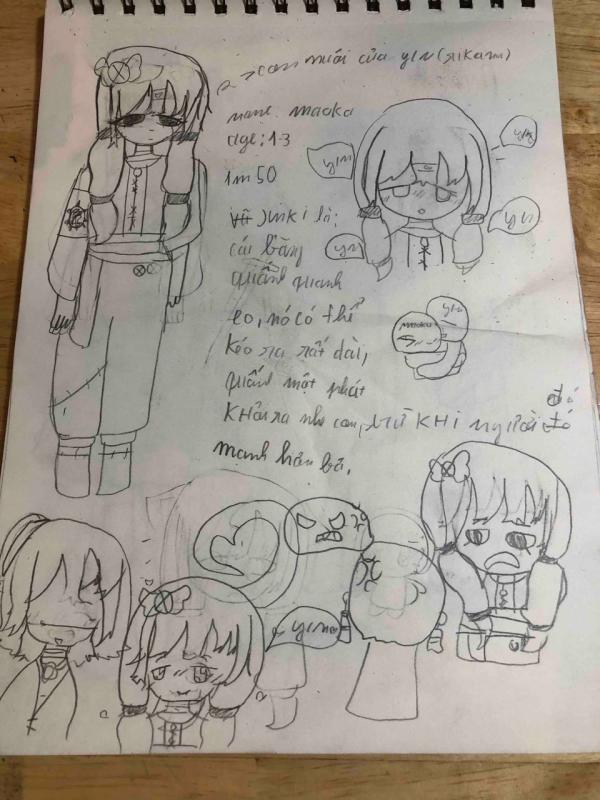 con muỗi của yin (rikam)
name: maoka
age: 13
1m50
Jinki là:
cái băng
quấn quanh
eo, nó có thể
kéo ra rất dài,
quấn một phát
khỏi ra nhà con, trừ KHI người đó
mạnh hơn bả,
yin
yin
yin
yin
yin
maoka